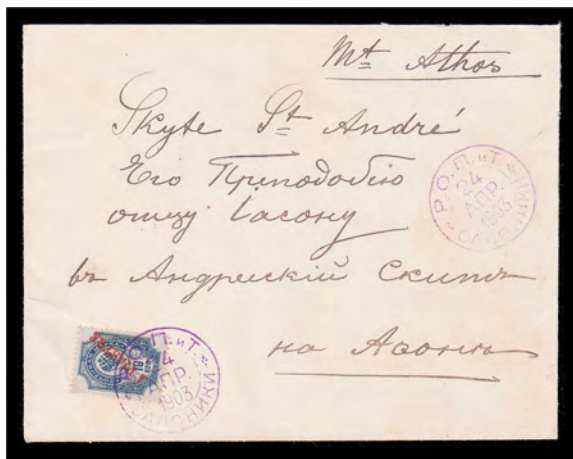 Mt Athos
Skyte St André
Его Преподобію
отцу Іасону
въ Андреескій Скитъ
на Аѳонъ
Р.О.П. и Т.
24
АПР.
1903
САЛОНИКИ
Р.О.П. и Т.
24
АПР.
1903
САЛОНИКИ